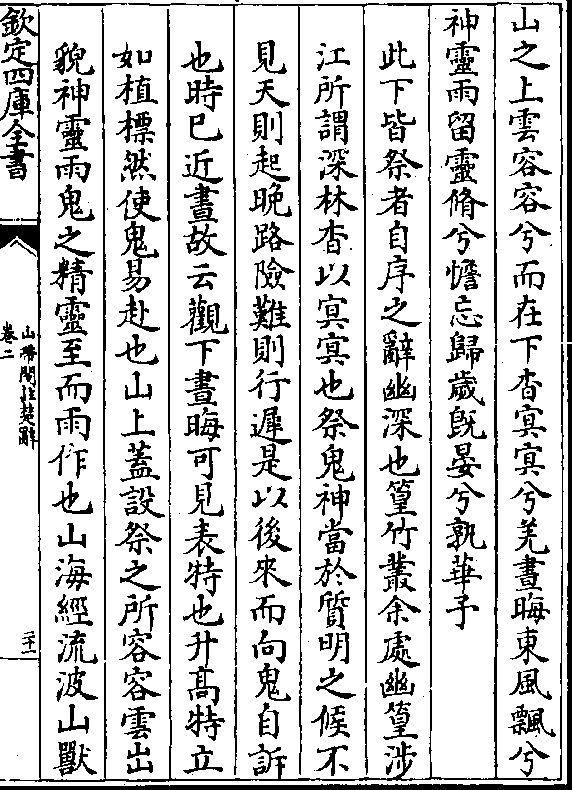 山之上雲容容兮而在下杳㝠㝠兮羌晝晦東風飄兮
神靈雨留靈脩兮憺忘歸歲旣晏兮孰華予
此下皆祭者自序之辭幽深也篁竹叢余處幽篁涉
江所謂深林杳以㝠㝠也祭鬼神當於質明之候不
見天則起晩路險難則行遲是以後來而向鬼自訴
也時已近晝故云觀下晝晦可見表特也升髙特立
如植標然使鬼易赴也山上蓋設祭之所容容雲出
貌神靈雨鬼之精靈至而雨作也山海經流波山獸
欽定四庫全書
山帶閣註楚辭
卷二
二十一